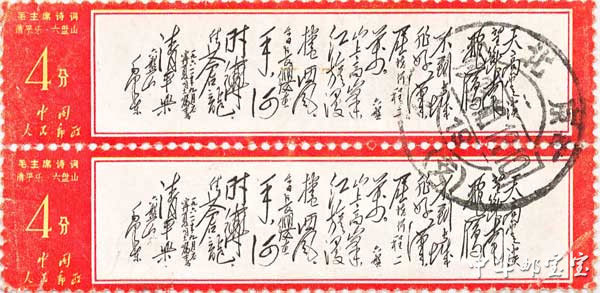 毛主席诗词
清平乐 六盘山
4分
中国
人民邮政
天高云淡
望断南
飞雁
不到长城
非好汉
屈指行程二
万 六盘
山上高峰
红旗漫
卷西风
今日长缨在
手何
时缚
住苍龙
清平乐
六盘山
毛泽东
北京
毛主席诗词
清平乐 六盘山
4分
中国
人民邮政
天高云淡
望断南
飞雁
不到长城
非好汉
屈指行程二
万 六盘
山上高峰
红旗漫
卷西风
今日长缨在
手何
时缚
住苍龙
清平乐
六盘山
毛泽东
中华邮宝宝